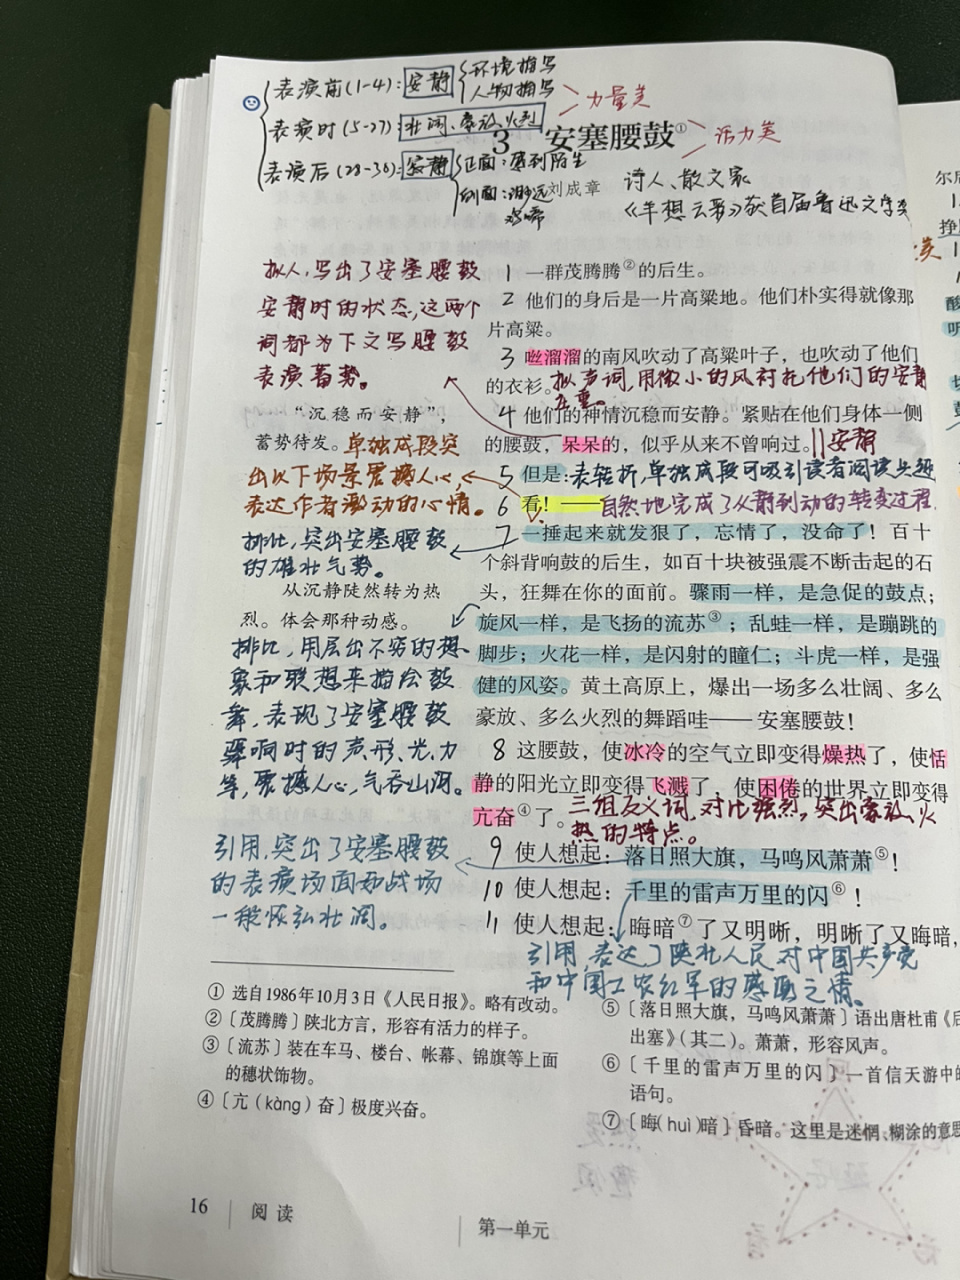 表演前(1-4):安静 环境描写
人物描写
力量美
表演时(5-27):壮阔、豪放、火烈
3 安塞腰鼓①
活力美
表演后(28-30):安静 正面:感到陌生
侧面:渺远
鸡啼
刘成章
诗人、散文家
《羊想云彩》获首届鲁迅文学奖
拟人,写出了安塞腰鼓
安静时的状态,这两个
词都为下文写腰鼓
表演蓄势。
“沉稳而安静”,
蓄势待发。
单独成段突
出以下场景震撼人心,
表达作者激动的心情。
排比,突出安塞腰鼓
的雄壮气势。
从沉静陡然转为热
烈。体会那种动感。
排比,用层出不穷的想
象和联想来描绘鼓
舞,表现了安塞腰鼓
骤响时的声、形、光、力
等,震撼人心,气吞山河。
引用,突出了安塞腰鼓
的表演场面如战场
一般恢弘壮阔。
1 一群茂腾腾②的后生。
2 他们的身后是一片高粱地。他们朴实得就像那
片高粱。
3 咝溜溜的南风吹动了高粱叶子,也吹动了他们
的衣衫。
拟声词,用微小的风衬托他们的安静
4 他们的神情沉稳而安静。紧贴在他们身体一侧
的腰鼓,呆呆的,似乎从来不曾响过。
安静
5 但是:
表转折,单独成段可吸引读者阅读兴趣
6 看!——
自然地完成了从静到动的转变过程
7 一捶起来就发狠了,忘情了,没命了!百十
个斜背响鼓的后生,如百十块被强震不断击起的石
头,狂舞在你的面前。骤雨一样,是急促的鼓点;
旋风一样,是飞扬的流苏③;乱蛙一样,是蹦跳的
脚步;火花一样,是闪射的瞳仁;斗虎一样,是强
健的风姿。黄土高原上,爆出一场多么壮阔、多么
豪放、多么火烈的舞蹈哇——安塞腰鼓!
8 这腰鼓,使冰冷的空气立即变得燥热了,使恬
静的阳光立即变得飞溅了,使困倦的世界立即变得
亢奋④了。
三组反义词,对比强烈,突出豪放、火
热的特点。
9 使人想起:落日照大旗,马鸣风萧萧⑤!
10 使人想起:千里的雷声万里的闪⑥!
11 使人想起:晦暗⑦了又明晰,明晰了又晦暗,
引用,表达了陕北人民对中国共产党
和中国工农红军的感恩之情。
① 选自1986年10月3日《人民日报》。略有改动。
②〔茂腾腾〕陕北方言,形容有活力的样子。
③〔流苏〕装在车马、楼台、帐幕、锦旗等上面
的穗状饰物。
④〔亢(kàng)奋〕极度兴奋。
⑤〔落日照大旗,马鸣风萧萧〕语出唐杜甫《后
出塞》(其二)。萧萧,形容风声。
⑥〔千里的雷声万里的闪〕一首信天游中的
语句。
⑦〔晦(huì)暗〕昏暗。这里是迷惘、糊涂的意思
16 阅读
第一单元